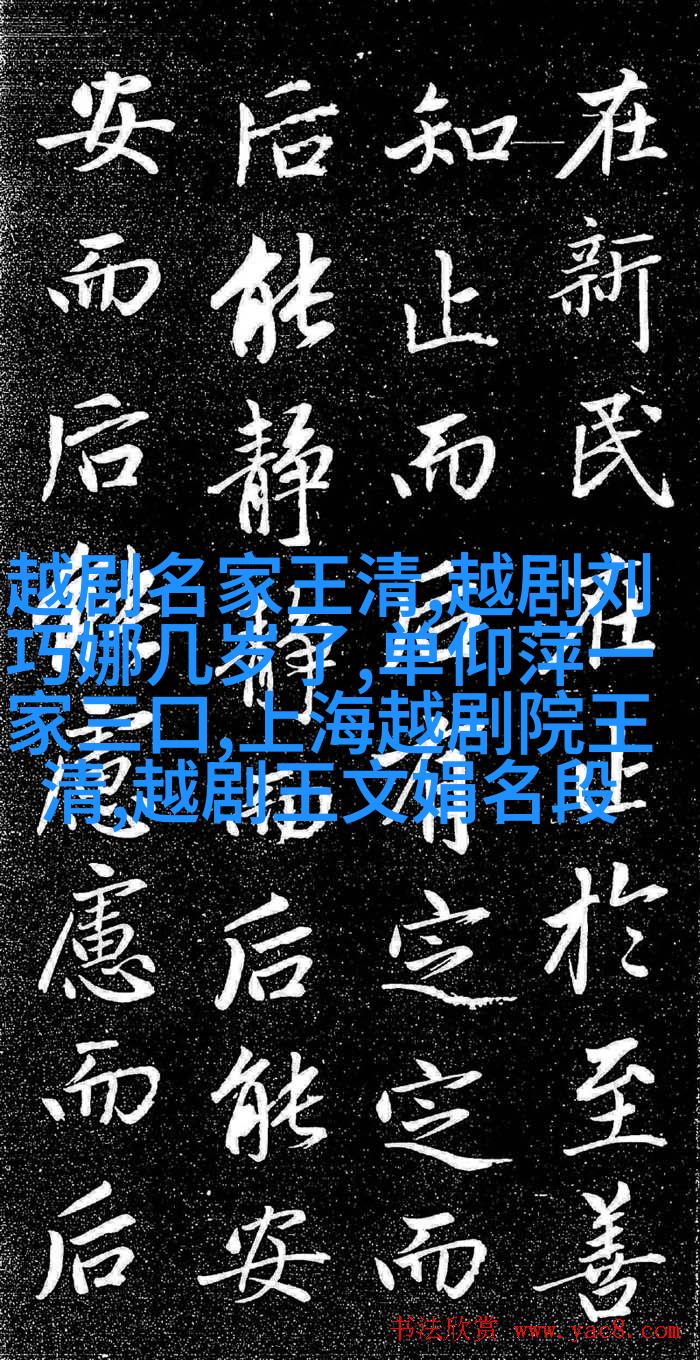 在新民在止於至善
知止而后有定定而
后能静静而后能安
安而后能慮慮而后
越剧名家王清,越剧刘
巧娜几岁了,单仰萍一
家三口,上海越剧院王
清,越剧王文娟名段
书法欣赏 www.yac8.com